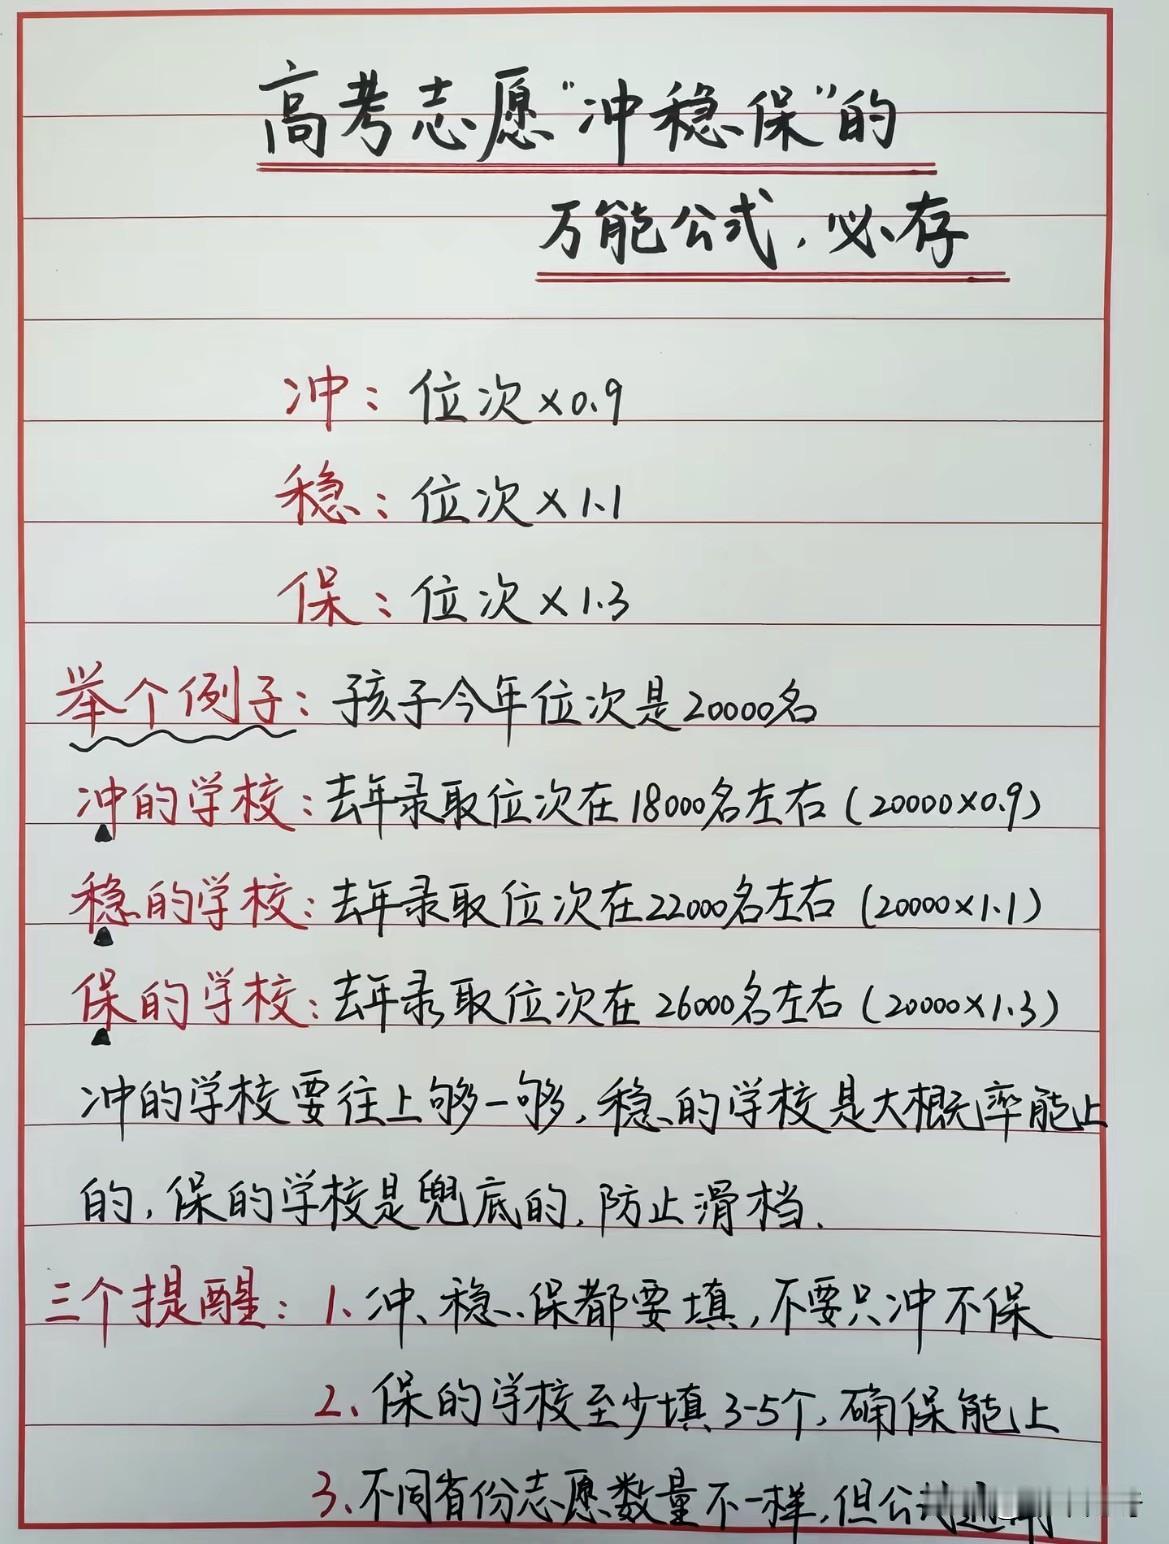 高考志愿“冲稳保”的
万能公式，必存
冲：位次×0.9
稳：位次×1.1
保：位次×1.3
举个例子：孩子今年位次是20000名
冲的学校：去年录取位次在18000名左右（20000×0.9）
稳的学校：去年录取位次在22000名左右（20000×1.1）
保的学校：去年录取位次在26000名左右（20000×1.3）
冲的学校要往上够一够，稳的学校是大概率能上
的，保的学校是兜底的，防止滑档.
三个提醒：1、冲、稳、保都要填，不要只冲不保
2、保的学校至少填3-5个，确保能上
3、不同省份志愿数量不一样，但公